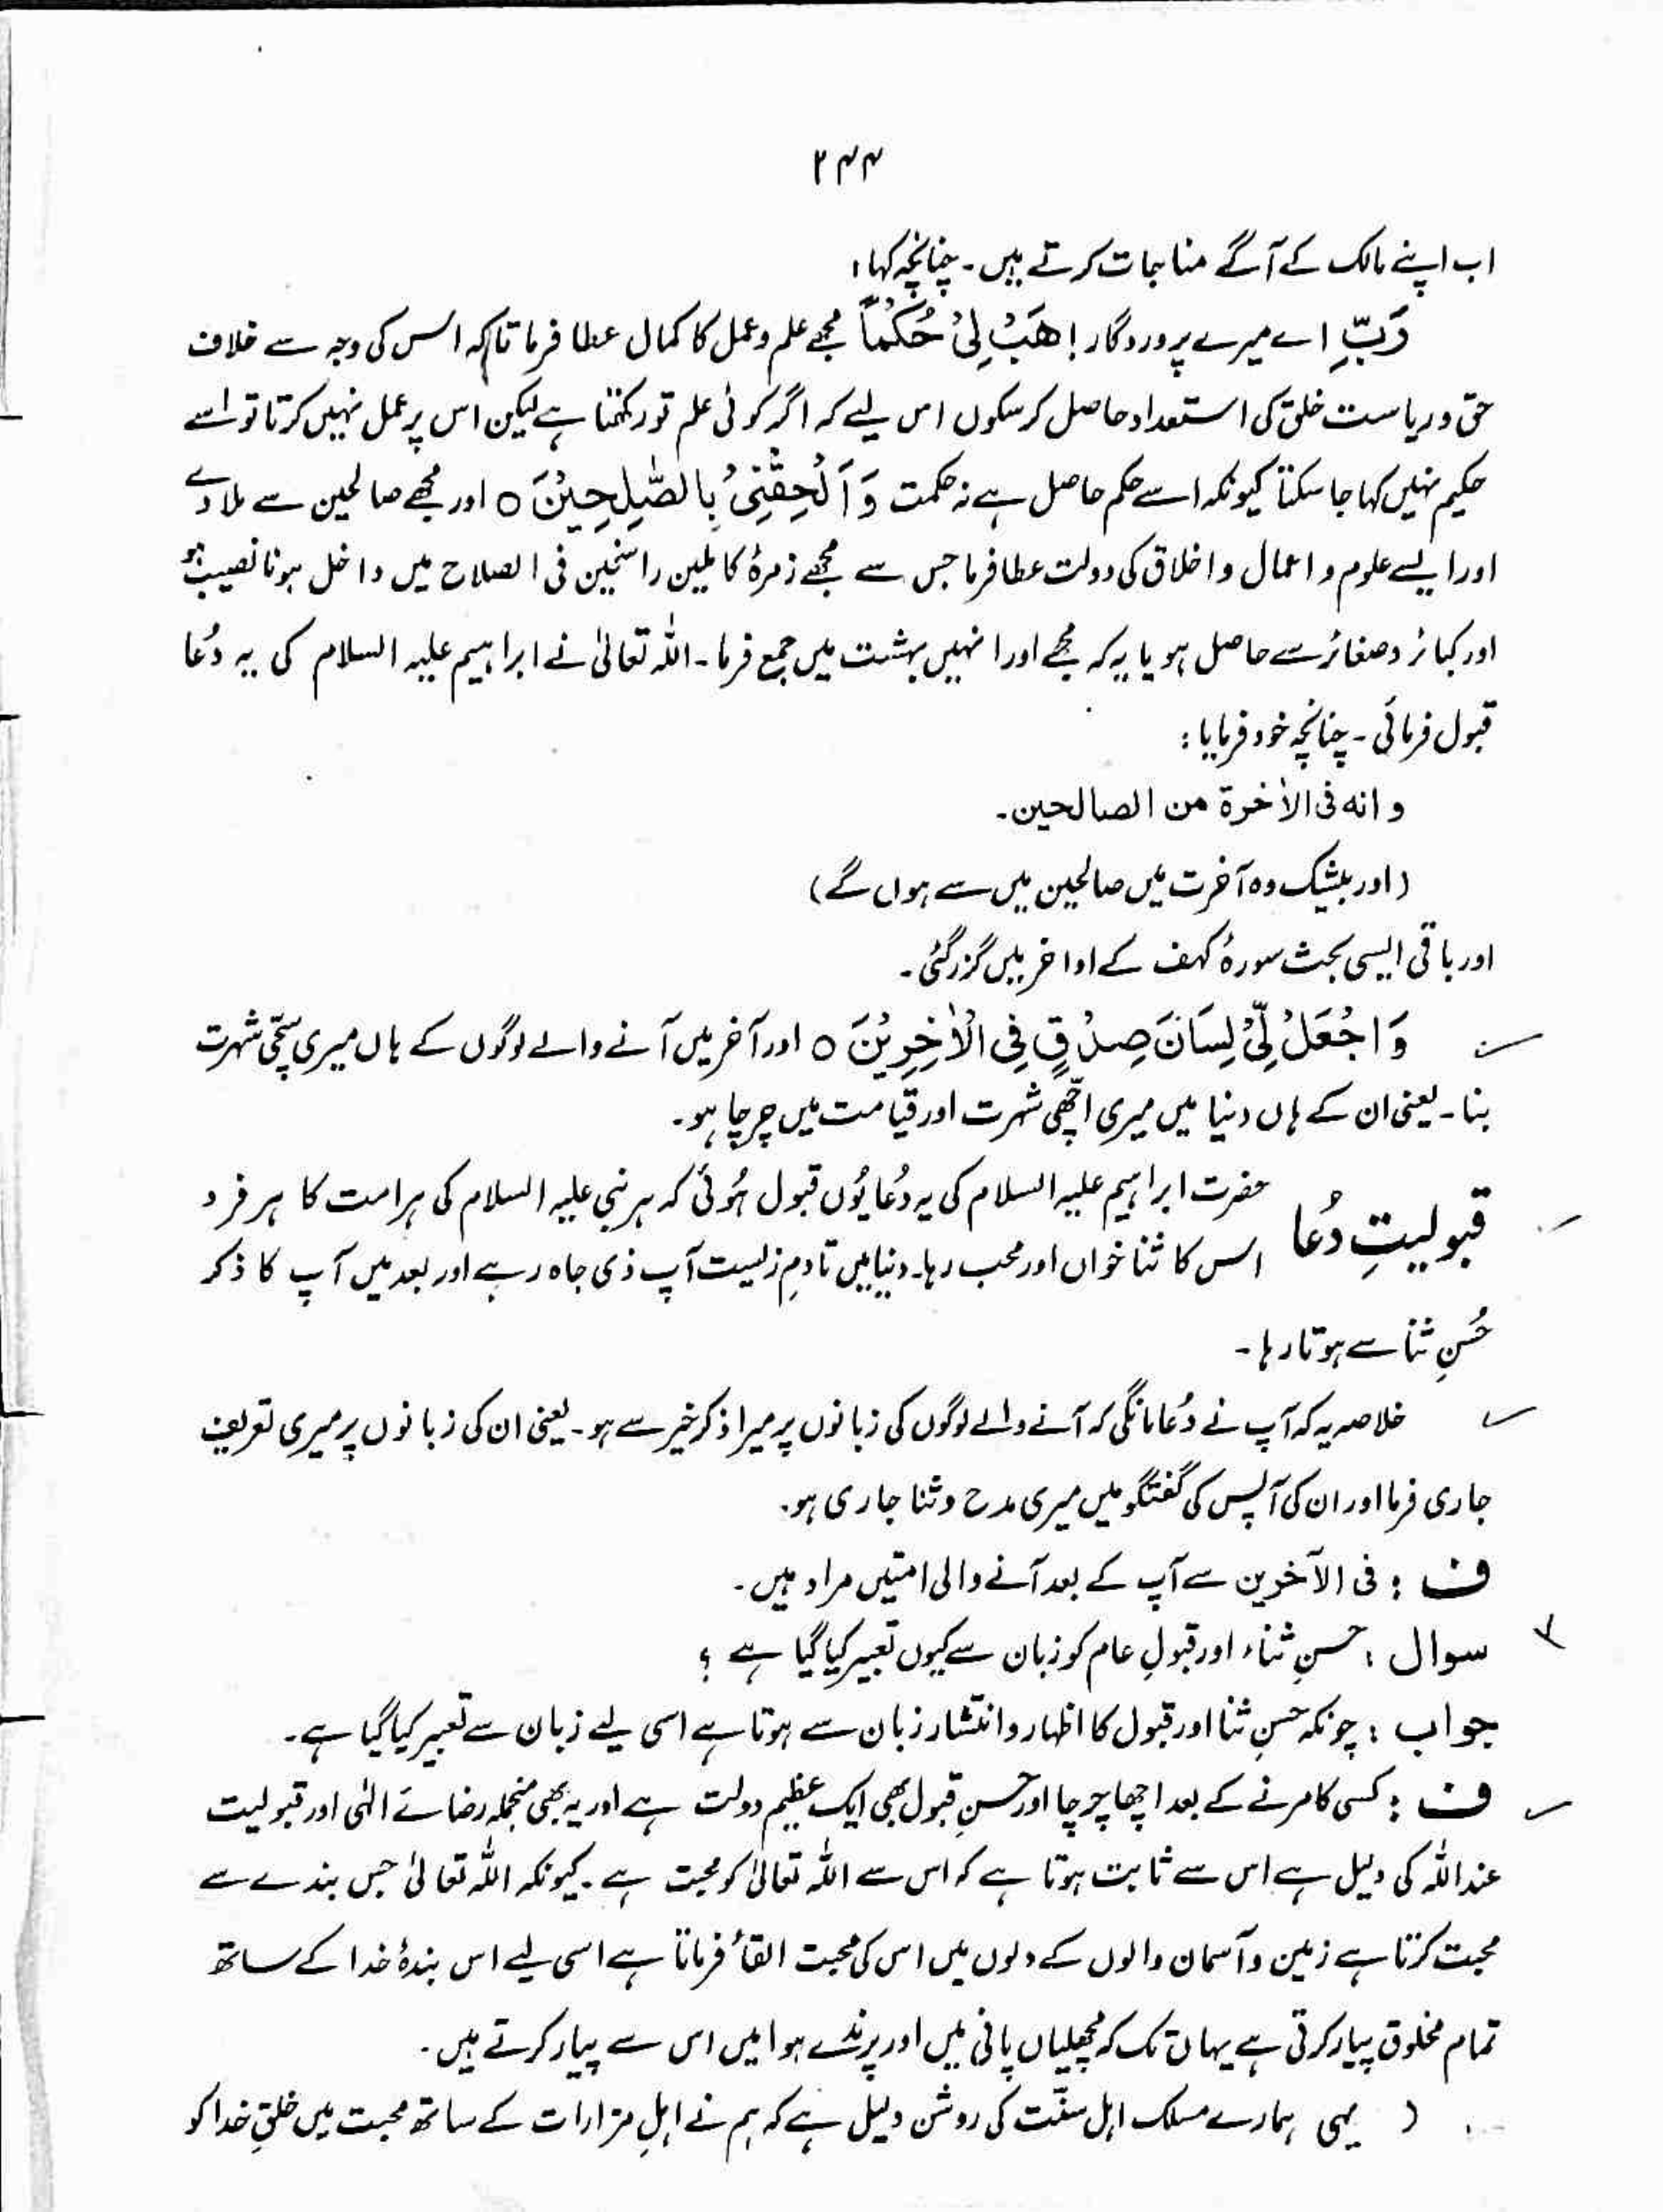 ۲۴۴
اب اپنے مالک کے آگے مناجات کرتے ہیں۔ چنانچہ کہا:
رَبِّ اے میرے پروردگار! هَبْ لِیْ حُكْمًا مجھے علم و عمل کا کمال عطا فرما تاکہ اس کی وجہ سے خلاف
حق و ریاست خلق کی استعداد حاصل کرسکوں اس لیے کہ اگر کوئی علم تو رکھتا ہے لیکن اس پر عمل نہیں کرتا تو اسے
حکیم نہیں کہا جا سکتا کیونکہ اسے حکم حاصل ہے نہ حکمت وَ اَلْحِقْنِیْ بِالصّٰلِحِیْنَ ○ اور مجھے صالحین سے ملا دے
اور ایسے علوم و اعمال و اخلاق کی دولت عطا فرما جس سے مجھے زمرۂ کاملین راسخین فی الصلاح میں داخل ہونا نصیب ہو
اور کبائر و صغائر سے حاصل ہو یا یہ کہ مجھے اور انہیں بہشت میں جمع فرما۔ اللہ تعالیٰ نے ابراہیم علیہ السلام کی یہ دُعا
قبول فرمائی۔ چنانچہ خود فرمایا:
و انه فی الاٰخرة من الصالحین۔
(اور بیشک وہ آخرت میں صالحین میں سے ہوں گے)
اور باقی ایسی بحث سورۂ کہف کے اواخر میں گزر گئی۔
وَ اجْعَلْ لِّیْ لِسَانَ صِدْقٍ فِی الْاٰخِرِیْنَ ○ اور آخر میں آنے والے لوگوں کے ہاں میری سچّی شہرت
بنا۔ یعنی ان کے ہاں دنیا میں میری اچّھی شہرت اور قیامت میں چرچا ہو۔
قبولیتِ دُعا حضرت ابراہیم علیہ السلام کی یہ دُعا یُوں قبول ہُوئی کہ ہر نبی علیہ السلام کی ہر امت کا ہر فرد
اس کا ثنا خواں اور محب رہا۔ دنیا میں تا دمِ زلیست آپ ذی جاہ رہے اور بعد میں آپ کا ذکر
حُسنِ ثنا سے ہوتا رہا۔
خلاصہ یہ کہ آپ نے دُعا مانگی کہ آنے والے لوگوں کی زبانوں پر میرا ذکر خیر سے ہو۔ یعنی ان کی زبانوں پر میری تعریف
جاری فرما اور ان کی آپس کی گفتگو میں میری مدح و ثنا جاری ہو۔
ف : فی الآخرین سے آپ کے بعد آنے والی امتیں مراد ہیں۔
سوال : حسنِ ثناء اور قبولِ عام کو زبان سے کیوں تعبیر کیا گیا ہے ؟
جواب : چونکہ حسنِ ثنا اور قبول کا اظہار و انتشار زبان سے ہوتا ہے اسی لیے زبان سے تعبیر کیا گیا ہے۔
ف : کسی کا مرنے کے بعد اچھا چرچا اور حسنِ قبول بھی ایک عظیم دولت ہے اور یہ بھی منجملہ رضائے الٰہی اور قبولیت
عند اللہ کی دلیل ہے اس سے ثابت ہوتا ہے کہ اس سے اللہ تعالیٰ کو محبت ہے۔ کیونکہ اللہ تعالیٰ جس بندے سے
محبت کرتا ہے زمین و آسمان والوں کے دلوں میں اس کی محبت القاءُ فرماتا ہے اسی لیے اس بندۂ خدا کے ساتھ
تمام مخلوق پیار کرتی ہے یہاں تک کہ مچھلیاں پانی میں اور پرندے ہوا میں اس سے پیار کرتے ہیں۔
( یہی ہمارے مسلک اہل سنّت کی روشن دلیل ہے کہ ہم نے اہلِ مزارات کے ساتھ محبت میں خلقِ خدا کو